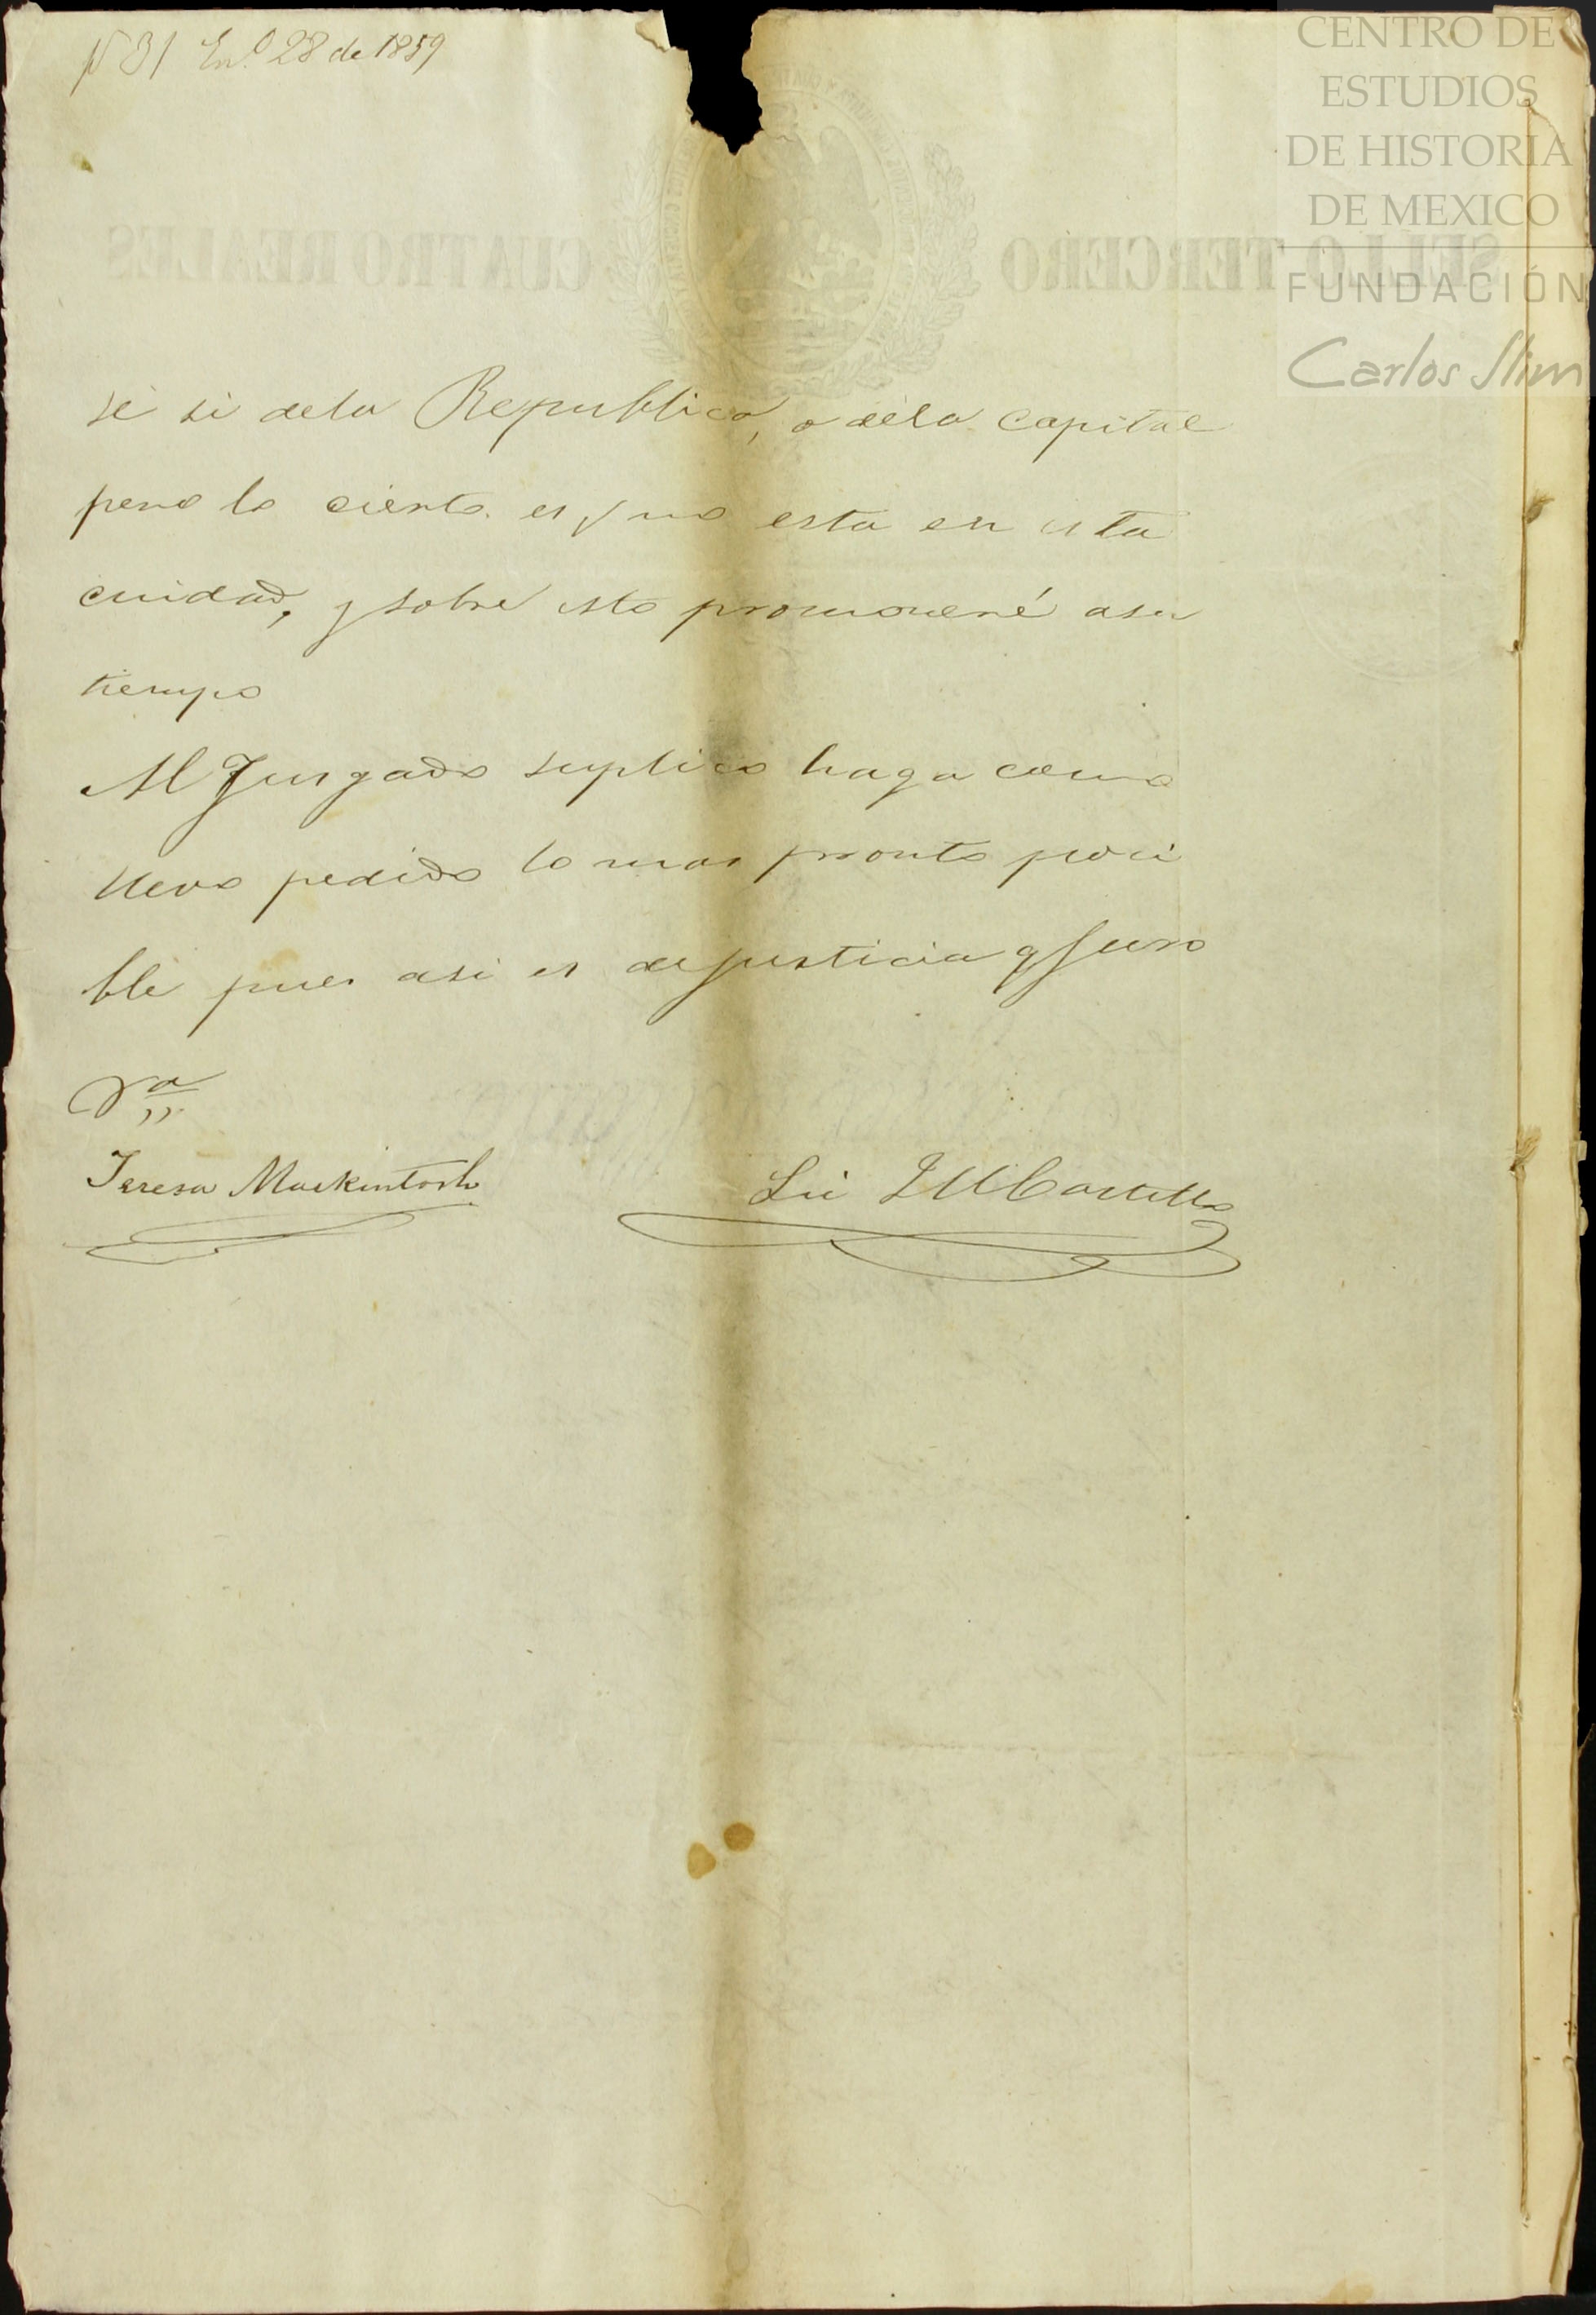 № 31 En.º 28 de 1859
CENTRO DE
ESTUDIOS
DE HISTORIA
DE MEXICO
FUNDACIÓN
Carlos Slim
CUATRO REALES
SELLO TERCERO
sé si dela Republica, o dela capital
pero lo cierto es q no esta en esta
cuidad, y sobre esto promoveré asu
tiempo
Al Jusgado suplico haga como
llevo pedido lo mas pronto poci
ble pues asi es de justicia q juro
Teresa Mackintosh
Lic Castillo